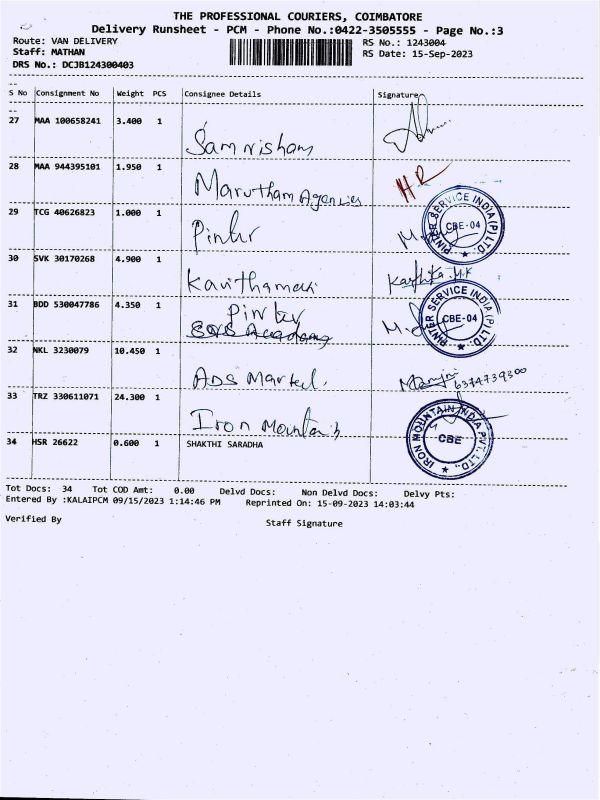 THE PROFESSIONAL COURIERS, COIMBATORE
Delivery Runsheet - PCM - Phone No.:0422-3505555 - Page No.:3
Route: VAN DELIVERY RS No.: 1243004
Staff: MATHAN RS Date: 15-Sep-2023
DRS No.: DCJB124300403
S No Consignment No Weight PCS Consignee Details Signature
27 MAA 100658241 3.400 1
28 MAA 944395101 1.950 1 Marutham Agencies HR
29 TCG 40626823 1.000 1 PINTER SERVICE INDIA (P) LTD. CBE-04
30 SVK 30170268 4.900 1
31 BDD 530047786 4.350 1 PINTER SERVICE INDIA (P) LTD. CBE-04
32 NKL 3230079 10.450 1 6374739300
33 TRZ 330611071 24.300 1 Iron Mountain IRON MOUNTAIN INDIA PVT. LTD., CBE
34 HSR 26622 0.600 1 SHAKTHI SARADHA
Tot Docs: 34 Tot COD Amt: 0.00 Delvd Docs: Non Delvd Docs: Delvy Pts:
Entered By :KALAIPCM 09/15/2023 1:14:46 PM Reprinted On: 15-09-2023 14:03:44
Verified By Staff Signature